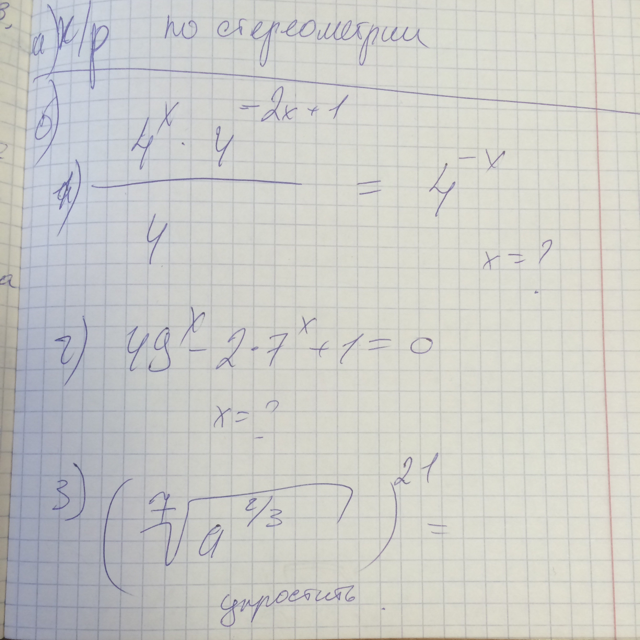 а) К/р по стереометрии
б)
1) (4^x · 4^(-2x+1)) / 4 = 4^(-x)
x = ?
2) 49^x - 2·7^x + 1 = 0
x = ?
3) (⁷√(a^(2/3)))^21 =
упростить.